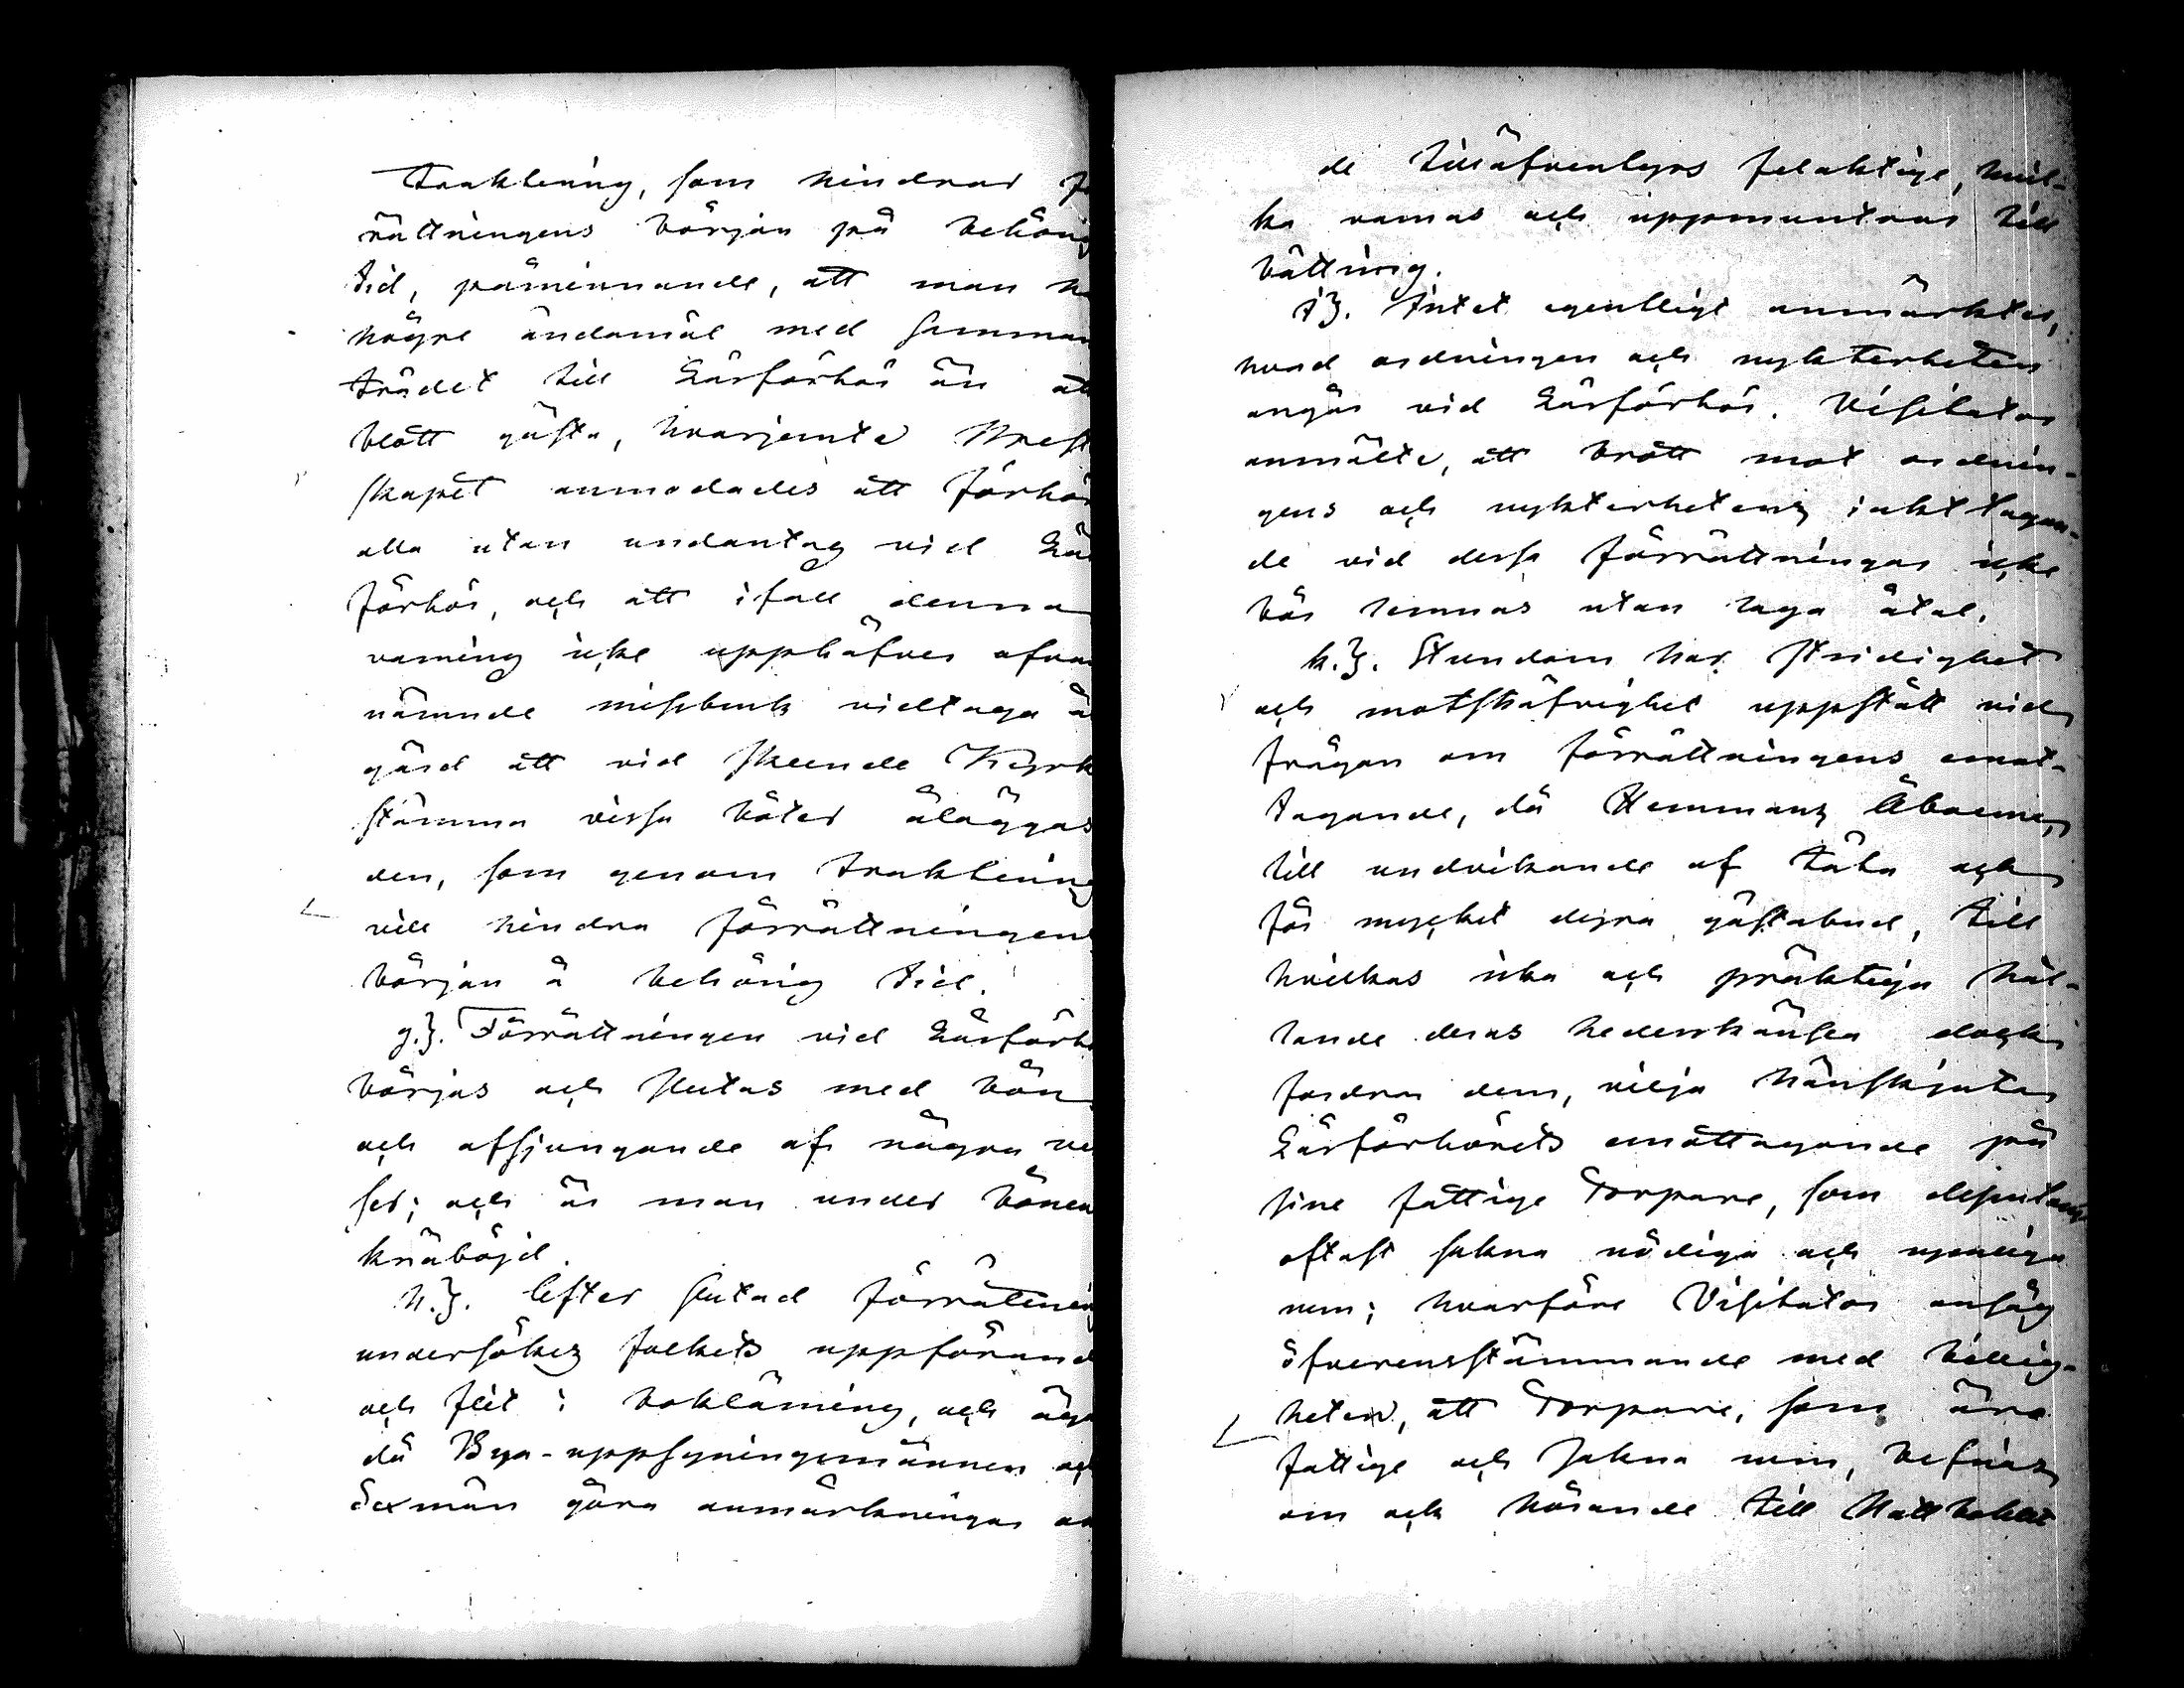 Traktering, som hindrar
rättningens början på behörig
tid, påminnande, att man
högre ändamål med samman
trädet till Läsförhör än att
blott gästa, hvarjemte Prest
skapet anmodades att förhör
alla utan undantag vid Läs
förhör, och att ifall denna
varning icke upphäfver ofvan
nämnde missbruk vidtaga å
gärd att vid skeende Kyrk
stämma vissa böter åläggas
den, som genom traktering
vill hindra förrättningens
början å behörig tid.
g.}. Förrättningen vid Läsförh
börjas och slutas med bön
och afsjungande af några ve
ser; och är man under bönen
knäböjd.
h.}. Efter slutad förrättning
undersökes folkets uppförand
och flit i bokläsning, och äga
då Bya-uppsyningsmännen och
Sexmän göra anmärkningar
de tilläfventyrs felaktige, hvil-
ka varnas och uppmuntras till
bättring.
i}. Intet egentligt anmärktes,
hvad ordningen och nykterheten
angår vid Läsförhör. Visitator
anmälte, att brott mot ordnin-
gens och nykterhetens iakttagan-
de vid dessa förrättningar icke
bör lemnas utan laga åtal.
k.}. Stundom har stridighet
och motsträfvighet uppstått vid
frågan om förrättningens emot-
tagande, då Hemmans Åboerne,
till undvikande af täta och
för mycket dyra gästabud, till
hvilkas rika och präktiga hål-
lande deras hederskänsla dock
fordrar dem, vilja hänskjuta
Läsförhörets emottagande på
sine fattige Torpare, som
oftast sakna nödiga och
rum; hvarföre Visitator ansåg
öfverensstämmande med billig-
heten, att Torpare, som äro
fattige och sakna rum, befrias
om och hörande till Mattbokat